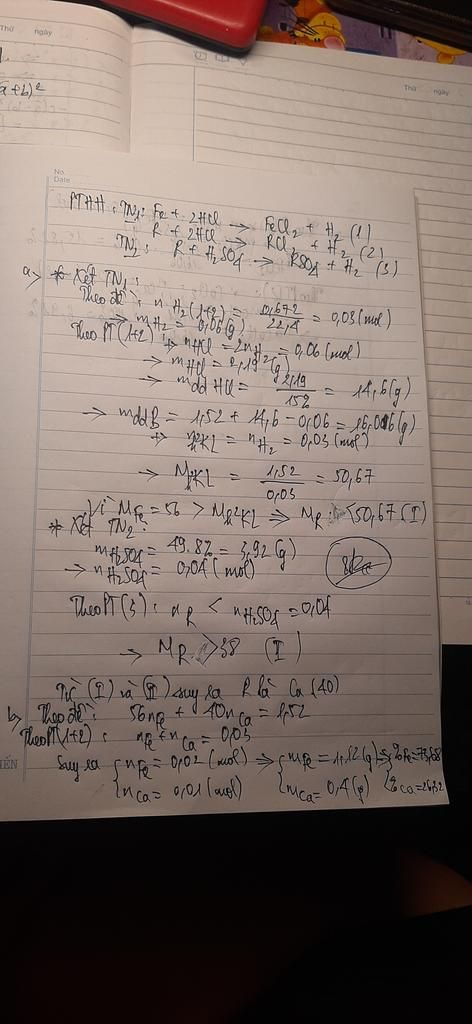 Thứ ngày
a+b)²
Thứ ngày
No.
Date
PTHH: TN1: Fe + 2HCl → FeCl2 + H2 (1)
R + 2HCl → RCl2 + H2 (2)
TN2: R + H2SO4 → RSO4 + H2 (3)
a, * Xét TN1:
Theo đề: nH2(1+2) = 0,672/22,4 = 0,03 (mol)
→ mH2 = 0,06 (g)
Theo PT(1+2): nHCl = 2nH2 = 0,06 (mol)
→ mHCl = 2,19 (g)
→ mdd HCl = 2,19/15% = 14,6 (g)
→ mddB = 1,52 + 14,6 - 0,06 = 16,06 (g)
n2KL = nH2 = 0,03 (mol)
→ M2KL = 1,52/0,03 = 50,67
Vì MFe = 56 > M2KL ⇒ MR < 50,67 (I)
* Xét TN2:
mH2SO4 = 49.8% = 3,92 (g)
→ nH2SO4 = 0,04 (mol)
Theo PT(3): nR < nH2SO4 = 0,04
→ MR > 38 (II)
Từ (I) và (II) suy ra R là Ca (40)
b, Theo đề: 56nFe + 40nCa = 1,52
Theo PT(1+2): nFe + nCa = 0,03
Suy ra { nFe = 0,02 (mol) ⇒ { mFe = 1,12 (g) ⇒ { %Fe = 73,68
{ nCa = 0,01 (mol) { mCa = 0,4 (g) { %Ca = 26,32